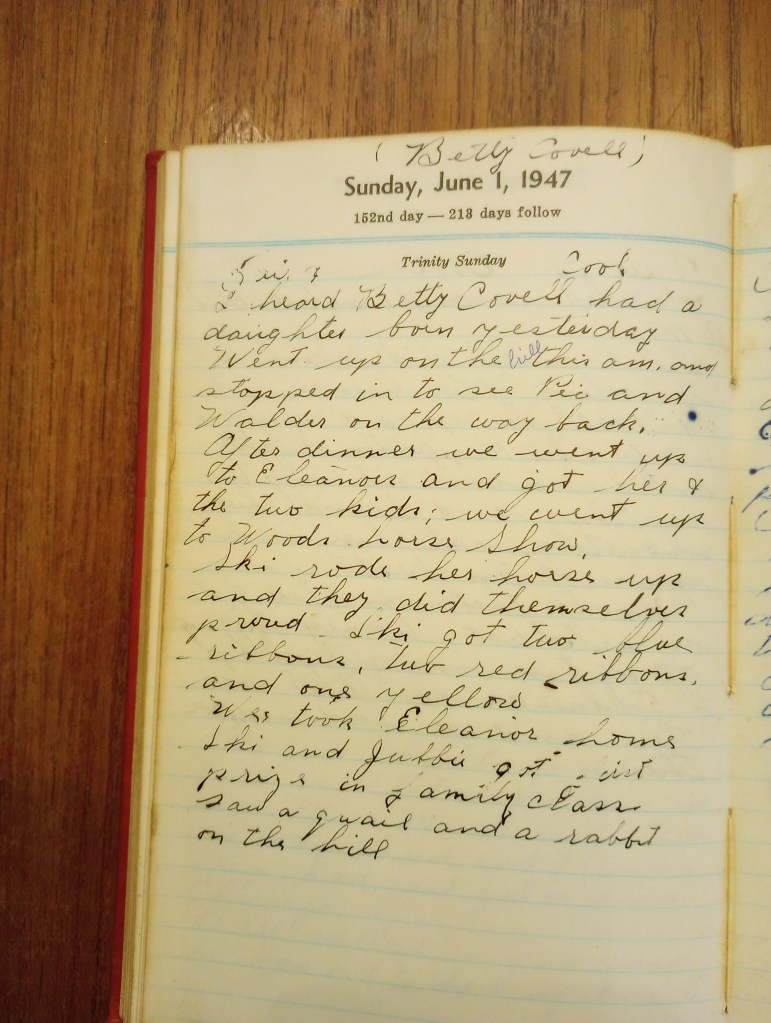 ( Betty Covell )
Sunday, June 1, 1947
152nd day — 213 days follow
Trinity Sunday
Fair & Cool
I heard Betty Covell had a
daughter born yesterday
Went up on the hill this am. and
stopped in to see Pei and
Walder on the way back.
After dinner we went up
to Eleanors and got her &
the two kids; we went up
to Woods horse show.
Ski rode her horse up
and they did themselves
proud. Ski got two blue
ribbons, two red ribbons,
and one yellow
We took Eleanor home
Ski and got first
prize in family class
saw a quail and a rabbit
on the hill